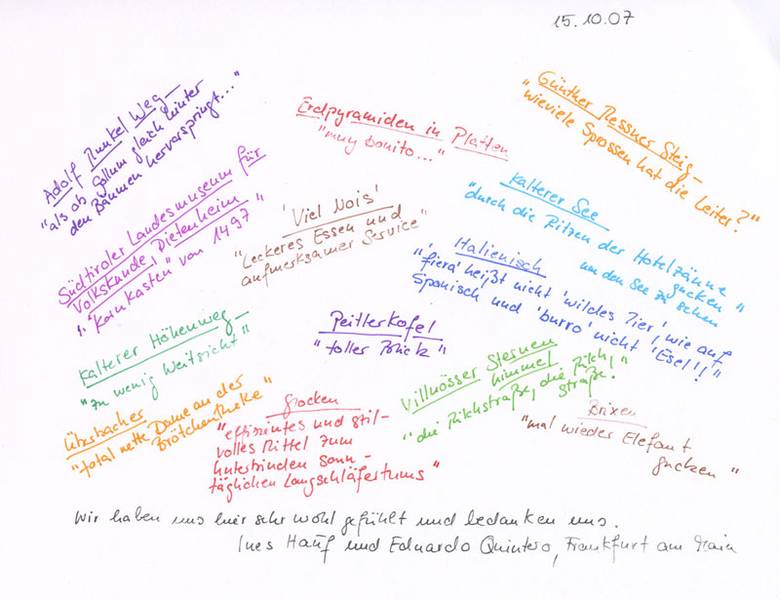 15.10.07
Adolf Munkel Weg –
"als ob Gollum gleich hinter
den Bäumen hervorspringt..."
Erdpyramiden in Platten
"muy bonito..."
Günther Messner Steig –
"wieviele Sprossen hat die Leiter?"
Südtiroler Landesmuseum für
Volkskunde, Dietenheim
"Kornkasten von 1497"
'Viel Nois'
"Leckeres Essen und
aufmerksamer Service"
Kalterer See
"durch die Ritzen der Hotelzäune
gucken
um den See zu sehen"
Italienisch
"'fiera' heißt nicht 'wildes Tier', wie auf
Spanisch und 'burro' nicht 'Esel'!"
Kalterer Höhenweg –
"zu wenig Weitsicht"
Peitlerkofel
"toller Blick"
Villnösser Sternen
himmel
"die Milchstraße, die Milch
straße."
Überbacher
"total nette Dame an der
Brötchentheke"
Glocken
"effizientes und stil-
volles Mittel zum
Unterbinden sonn-
täglichen Langschläfertums"
Brixen
"mal wieder Elefant
gucken"
Wir haben uns hier sehr wohl gefühlt und bedanken uns.
Ines Hauf und Eduardo Quintero, Frankfurt am Main